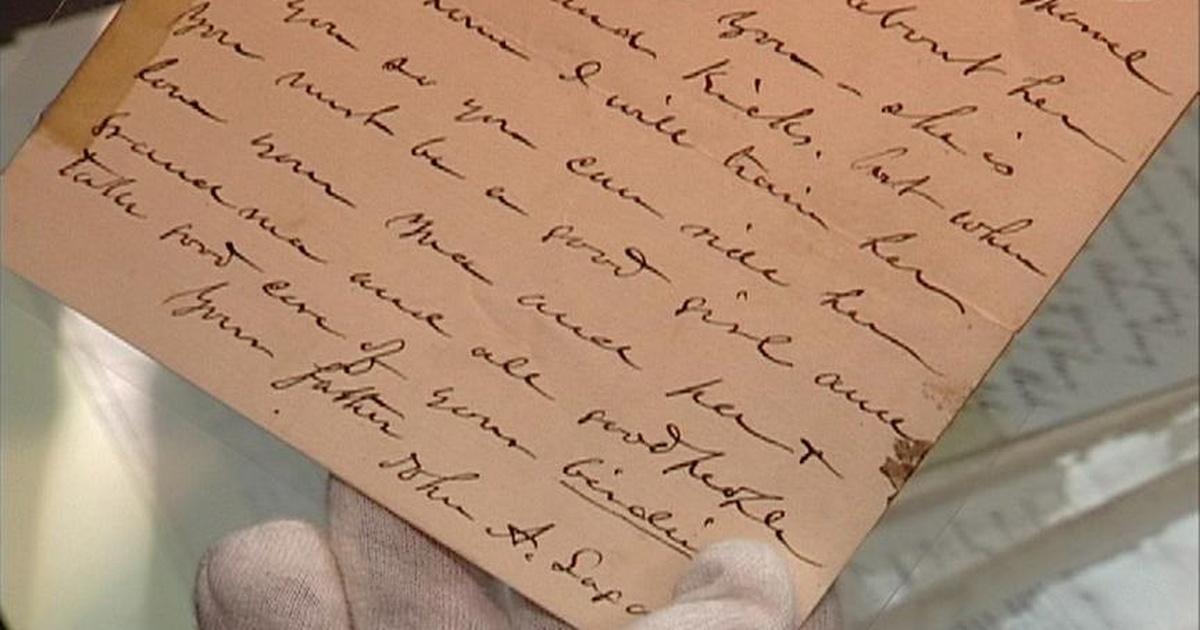 about her
you - she is
and kicks. but when
home I will train her
you so you can ride her
You must be a good girl and
love your Ma and her &
grand ma and all good people
take good care of your birdie
Your father
John A.